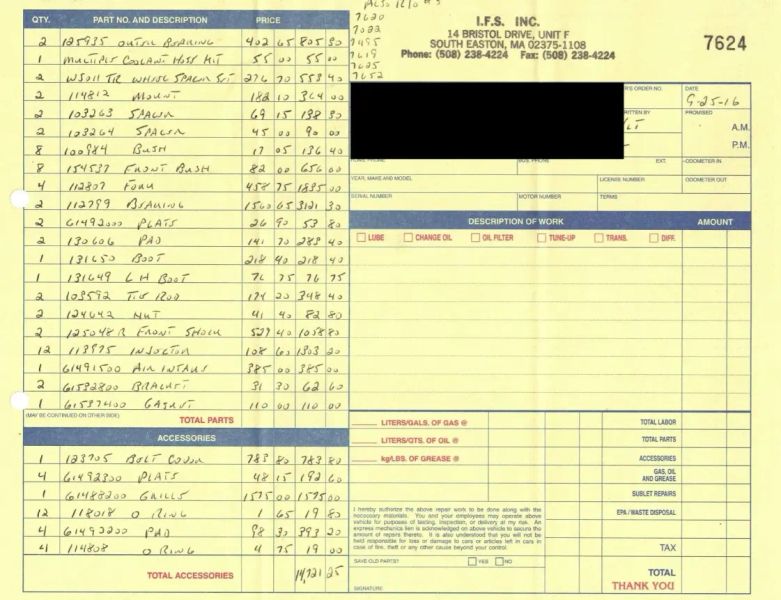 ALSO R/O #'S
7620
7022
7495
7619
7625
7652
I.F.S. INC.
14 BRISTOL DRIVE, UNIT F
SOUTH EASTON, MA 02375-1108
Phone: (508) 238-4224 Fax: (508) 238-4224
7624
QTY. PART NO. AND DESCRIPTION PRICE
2 125935 OUTER BEARING 402 65 805 30
1 MULTIPLE COOLANT HOSE KIT 55 00 55 00
2 276 70 553 40
2 114812 MOUNT 182 10 364 00
2 103263 69 15 138 30
2 103264 45 00 90 00
8 100984 BUSH 17 05 136 40
8 154537 FRONT BUSH 82 00 656 00
4 112807 FORK 458 75 1835 00
2 112799 BEARING 1560 65 3121 30
2 61492000 PLATE 26 90 53 80
2 130606 PAD 141 70 283 40
1 131650 BOOT 218 40 218 40
1 131649 LH BOOT 76 75 76 75
2 103592 TIE ROD 174 20 348 40
2 124642 NUT 41 40 82 80
2 125048 R FRONT SHOCK 529 40 1058 80
12 113975 INJECTOR 108 60 1303 20
1 61491500 AIR INTAKE 385 00 385 00
2 61532800 BRACKET 31 30 62 60
1 61537400 GASKET 110 00 110 00
(MAY BE CONTINUED ON OTHER SIDE)
TOTAL PARTS
ACCESSORIES
1 123705 BELT COVER 783 80 783 80
4 61492300 PLATE 48 15 192 60
1 61488200 GRILLE 1575 00 1575 00
12 118018 O RING 1 65 19 80
4 61492200 PAD 98 30 393 20
4 114808 O RING 4 75 19 00
TOTAL ACCESSORIES 14,721 25
'S ORDER NO. DATE
9-25-16
RITTEN BY PROMISED
A.M.
P.M.
HOME PHONE BUS. PHONE EXT. ODOMETER IN
YEAR, MAKE AND MODEL LICENSE NUMBER ODOMETER OUT
SERIAL NUMBER MOTOR NUMBER TERMS
DESCRIPTION OF WORK AMOUNT
LUBE CHANGE OIL OIL FILTER TUNE-UP TRANS. DIFF.
LITERS/GALS. OF GAS @ TOTAL LABOR
LITERS/QTS. OF OIL @ TOTAL PARTS
kg/LBS. OF GREASE @ ACCESSORIES
GAS, OIL AND GREASE
SUBLET REPAIRS
I hereby authorize the above repair work to be done along with the
necessary materials. You and your employees may operate above
vehicle for purposes of testing, inspection, or delivery at my risk. An
express mechanics lien is acknowledged on above vehicle to secure the
amount of repairs thereto. It is also understood that you will not be
held responsible for loss or damage to cars or articles left in cars in
case of fire, theft or any other cause beyond your control.
EPA / WASTE DISPOSAL
TAX
SAVE OLD PARTS? YES NO
TOTAL
THANK YOU
SIGNATURE